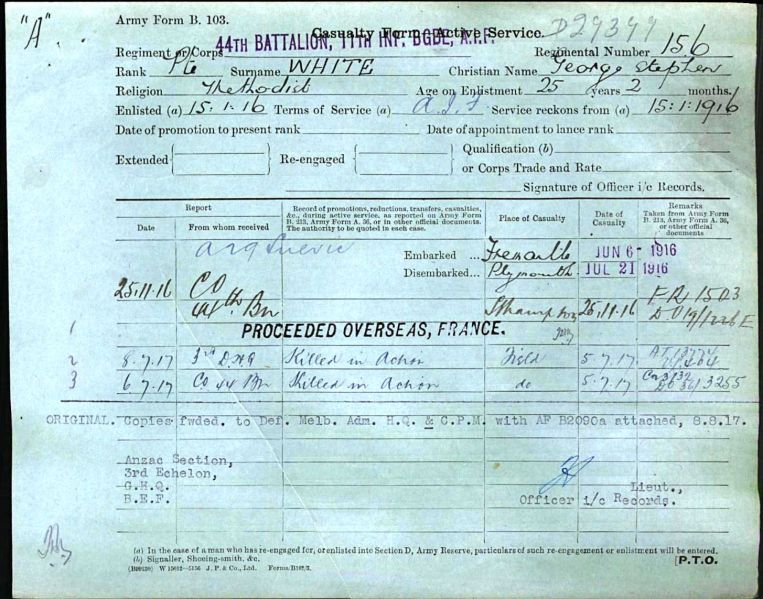 "A"
Army Form B. 103.
Casualty Form—Active Service.
D29399
Regiment or Corps 44TH BATTALION, 11TH INF. BGDE, A.I.F. Regimental Number 156
Rank Pte Surname WHITE Christian Name George Stephen
Religion Methodist Age on Enlistment 25 years 2 months.
Enlisted (a) 15.1.16 Terms of Service (a) A.I.F Service reckons from (a) 15.1.1916
Date of promotion to present rank Date of appointment to lance rank
Extended Re-engaged Qualification (b)
or Corps Trade and Rate
Signature of Officer i/c Records.
Report Record of promotions, reductions, transfers, casualties, &c., during active service, as reported on Army Form B. 213, Army Form A. 36, or in other official documents. The authority to be quoted in each case. Place of Casualty Date of Casualty Remarks Taken from Army Form B. 213, Army Form A. 36, or other official documents
Date From whom received
Embarked ... Fremantle JUN 6 - 1916
Disembarked ... Plymouth JUL 21 1916
25.11.16 CO 44th Bn Sthampton 25.11.16
1 PROCEEDED OVERSEAS, FRANCE.
2 8.7.17 3rd Killed in Action Field 5.7.17
3 6.7.17 CO 44 Bn Killed in Action do 5.7.17
ORIGINAL. Copies fwded. to Def. Melb. Adm. H.Q. & C.P.M. with AF B2090a attached, 8.8.17.
Anzac Section,
3rd Echelon,
G.H.Q. Lieut.,
B.E.F. Officer i/c Records.
(a) In the case of a man who has re-engaged for, or enlisted into Section D, Army Reserve, particulars of such re-engagement or enlistment will be entered.
(b) Signaller, Shoeing-smith, &c.
J. P. & Co., Ltd. [P.T.O.